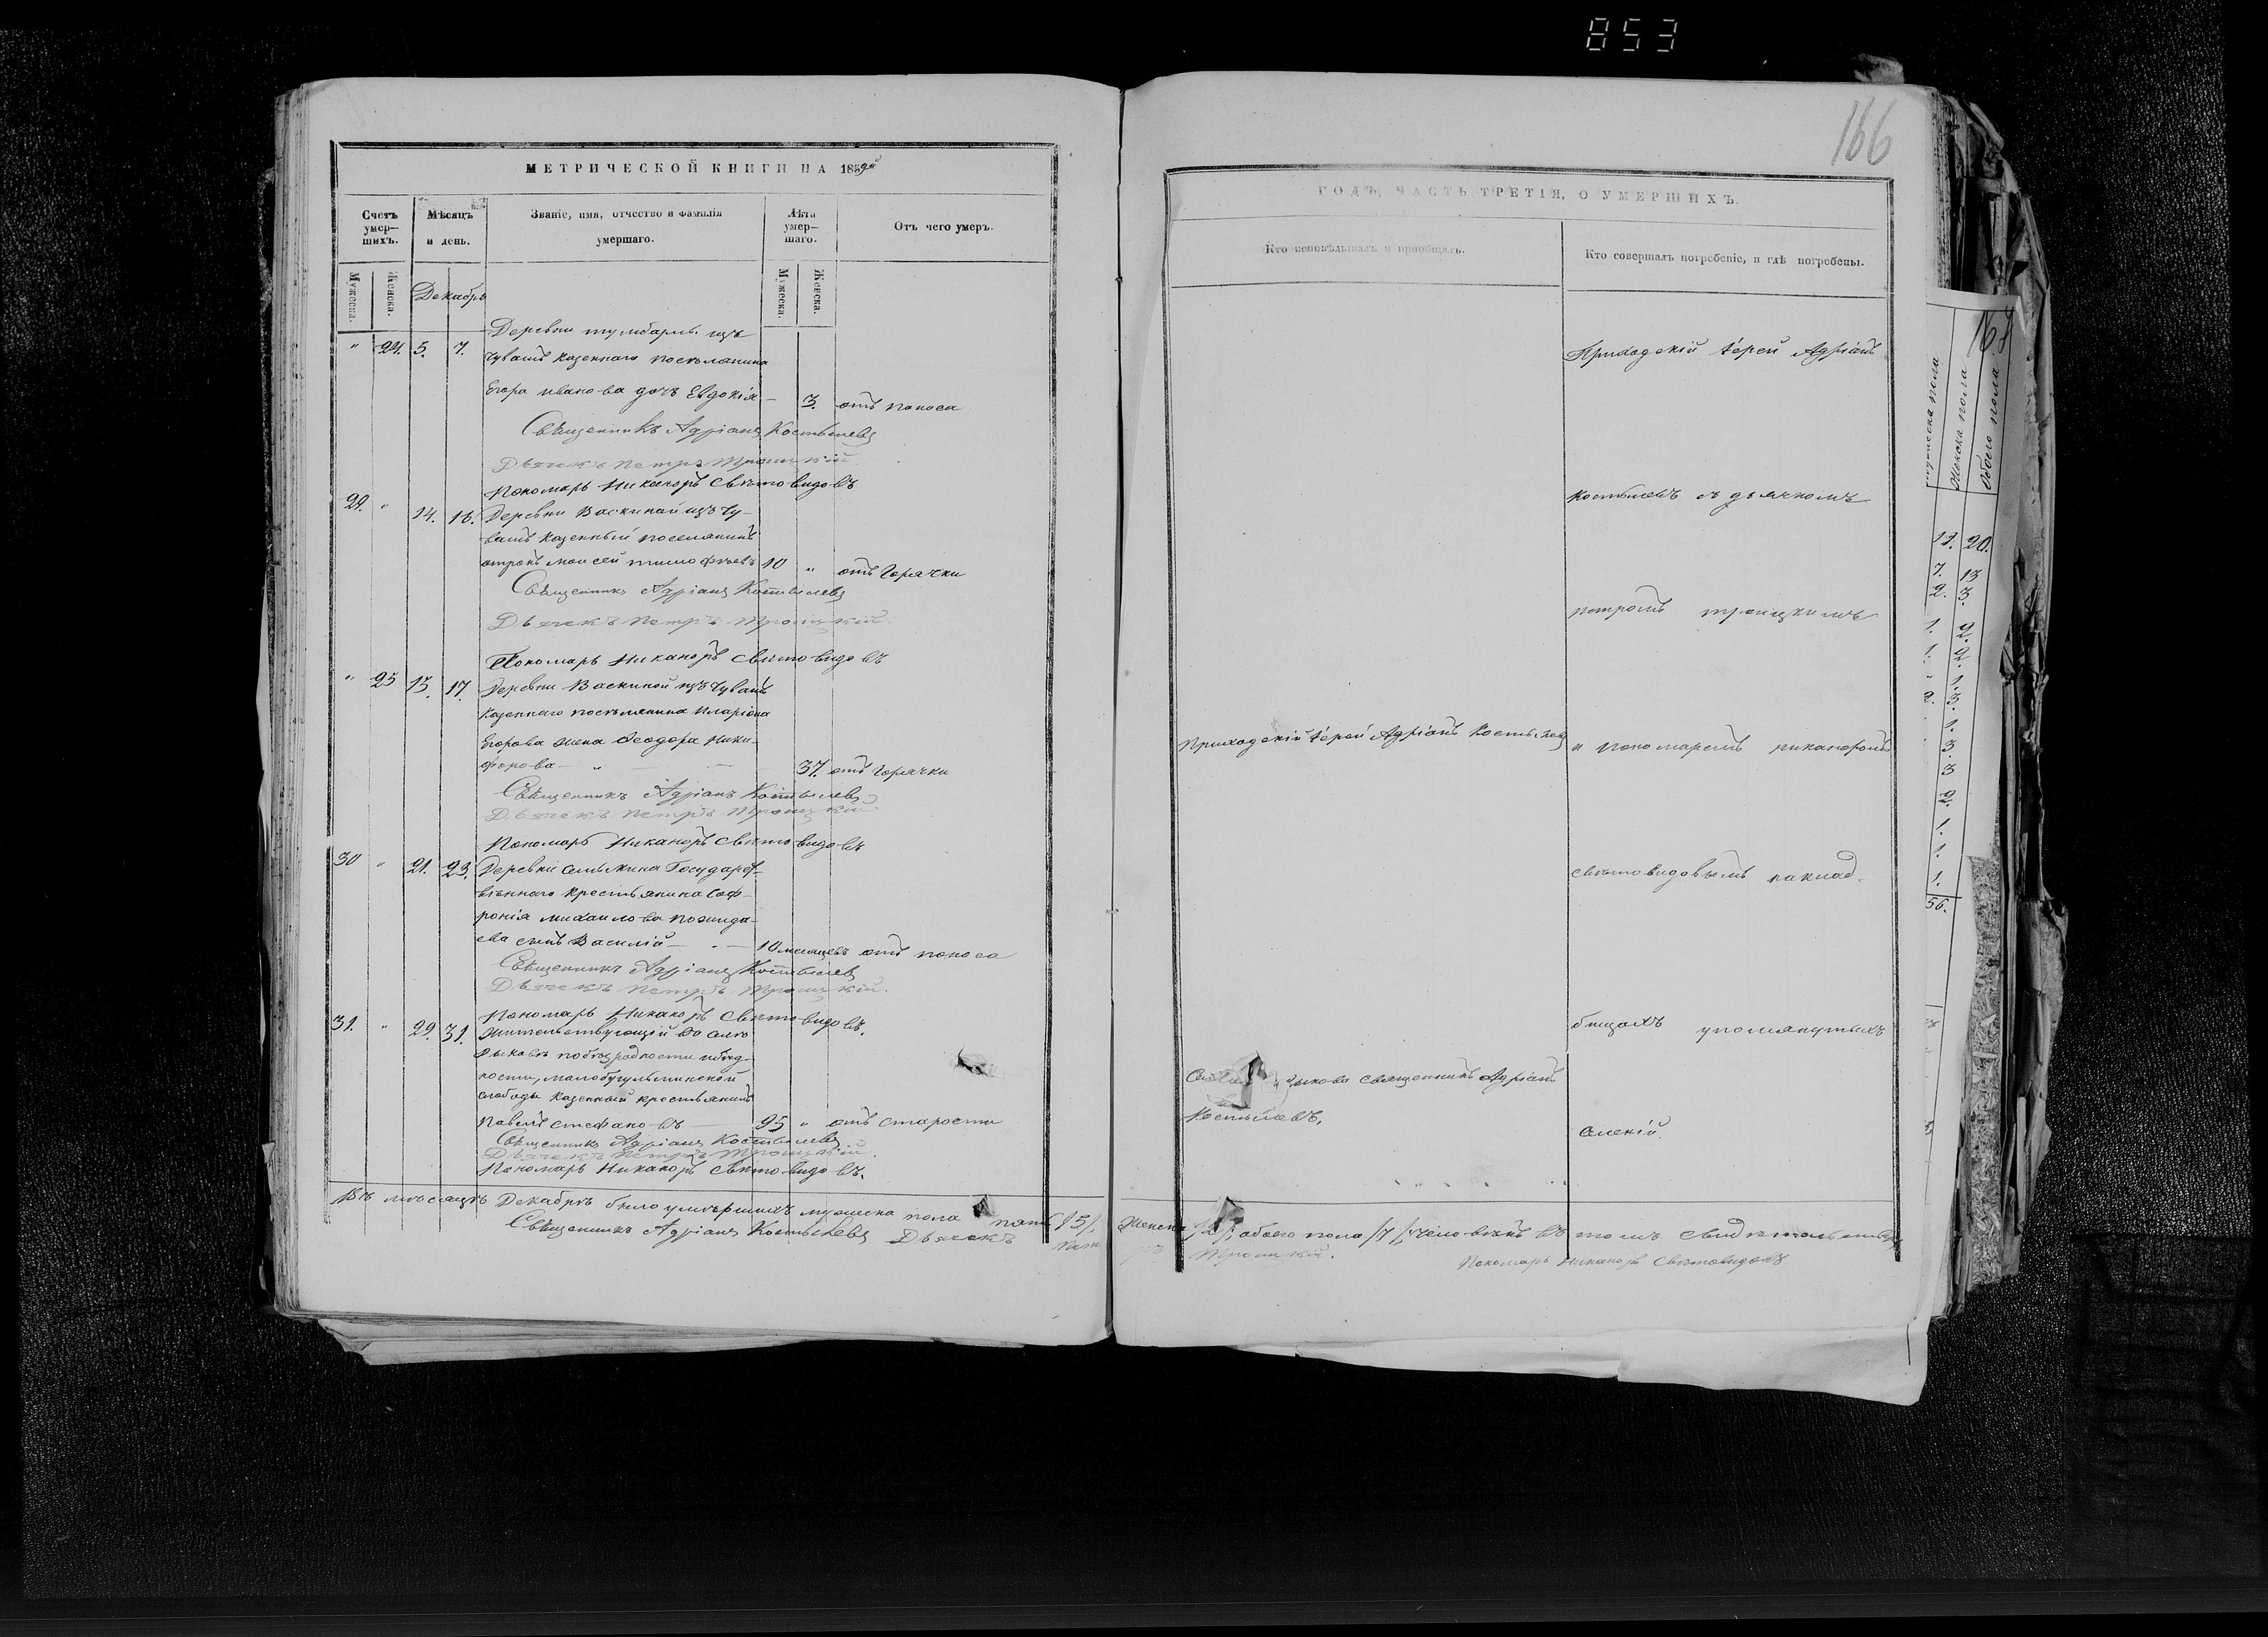 853
166
МЕТРИЧЕСКОЙ КНИГИ НА 1859й
Счетъ умер—шихъ.
Мѣсяцъ и день.
Званіе, имя, отчество и фамилія умершаго.
Лѣта умер—шаго.
Отъ чего умеръ.
Мужеска.
Женска.
Декабрь
Мужеска.
Женска.
Деревни тумбарлы изъ
" 24. 5. 7. Чувашъ казеннаго поселянина
Егора иванова дочь Евдокія — 3. отъ поноса
Священникъ Адріанъ Костылевъ
Дьячекъ Петръ Троицкій.
Пономарь Никаноръ Святовидовъ
29. " 14. 16. Деревни Васкиной изъ чу-
вашъ казенный поселянинъ
отрокъ моисей тимофѣевъ 10 " отъ Горячки
Священникъ Адріанъ Костылевъ
Дьячекъ Петръ Троицкій.
Пономарь Никаноръ Святовидовъ
" 25 15. 17. Деревни Васкиной изъ Чувашъ
казеннаго поселянина Иларіона
Егорова жена Феодора Ники-
форова — " — 37. отъ Горячки
Священникъ Адріанъ Костылевъ
Дьячекъ Петръ Троицкій.
Пономарь Никаноръ Святовидовъ
30 " 21. 23. Деревни Государст-
веннаго крестьянина Соф-
ронія михаилова
сынъ Василій — 10 месяцевъ отъ поноса
Священникъ Адріанъ Костылевъ
Дьячекъ Петръ Троицкій.
Пономарь Никаноръ Святовидовъ.
31. " 29. 31. Жительствующій въ селѣ
Зыковѣ
ности, малобугульминской
слободы казенный крестьянинъ
Павелъ стефановъ — 95 " отъ старости
Священникъ Адріанъ Костылевъ
Дьячекъ Петръ Троицкій.
Пономарь Никаноръ Святовидовъ.
ГОДЪ, ЧАСТЬ ТРЕТІЯ, О УМЕРШИХЪ.
Кто исповѣдывалъ и пріобщалъ.
Кто совершалъ погребеніе, и гдѣ погребены.
Приходскій іерей Адріанъ
костылевъ съ дьячкомъ
петромъ троицкимъ
Приходскій іерей Адріанъ Костылевъ
и пономаремъ никаноромъ
святовидовымъ на клад-
бищахъ упомянутыхъ
зыкова священникъ Адріанъ
Костылевъ.
селеній.
Въ месяцѣ Декабрѣ было умершихъ мужеска пола пять /5/. женска обоего пола /7/ человѣкъ въ томъ свидетельствуемъ
Священникъ Адріанъ Костылевъ Дьячекъ Петръ Троицкій. Пономарь Никаноръ Святовидовъ
Женска пола
Обоего пола
11. 20.
7. 13
2. 3.
1. 2.
1. 2.
" 1.
2. 3.
1.
3.
3
2.
1.
1.
1.
56.